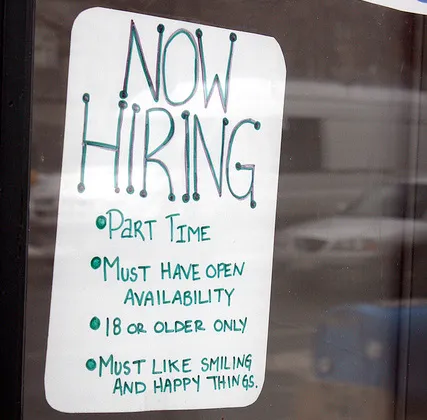 NOW
HIRING
• PART TIME
• MUST HAVE OPEN
AVAILABILITY
• 18 OR OLDER ONLY
• MUST LIKE SMILING
AND HAPPY THINGS.